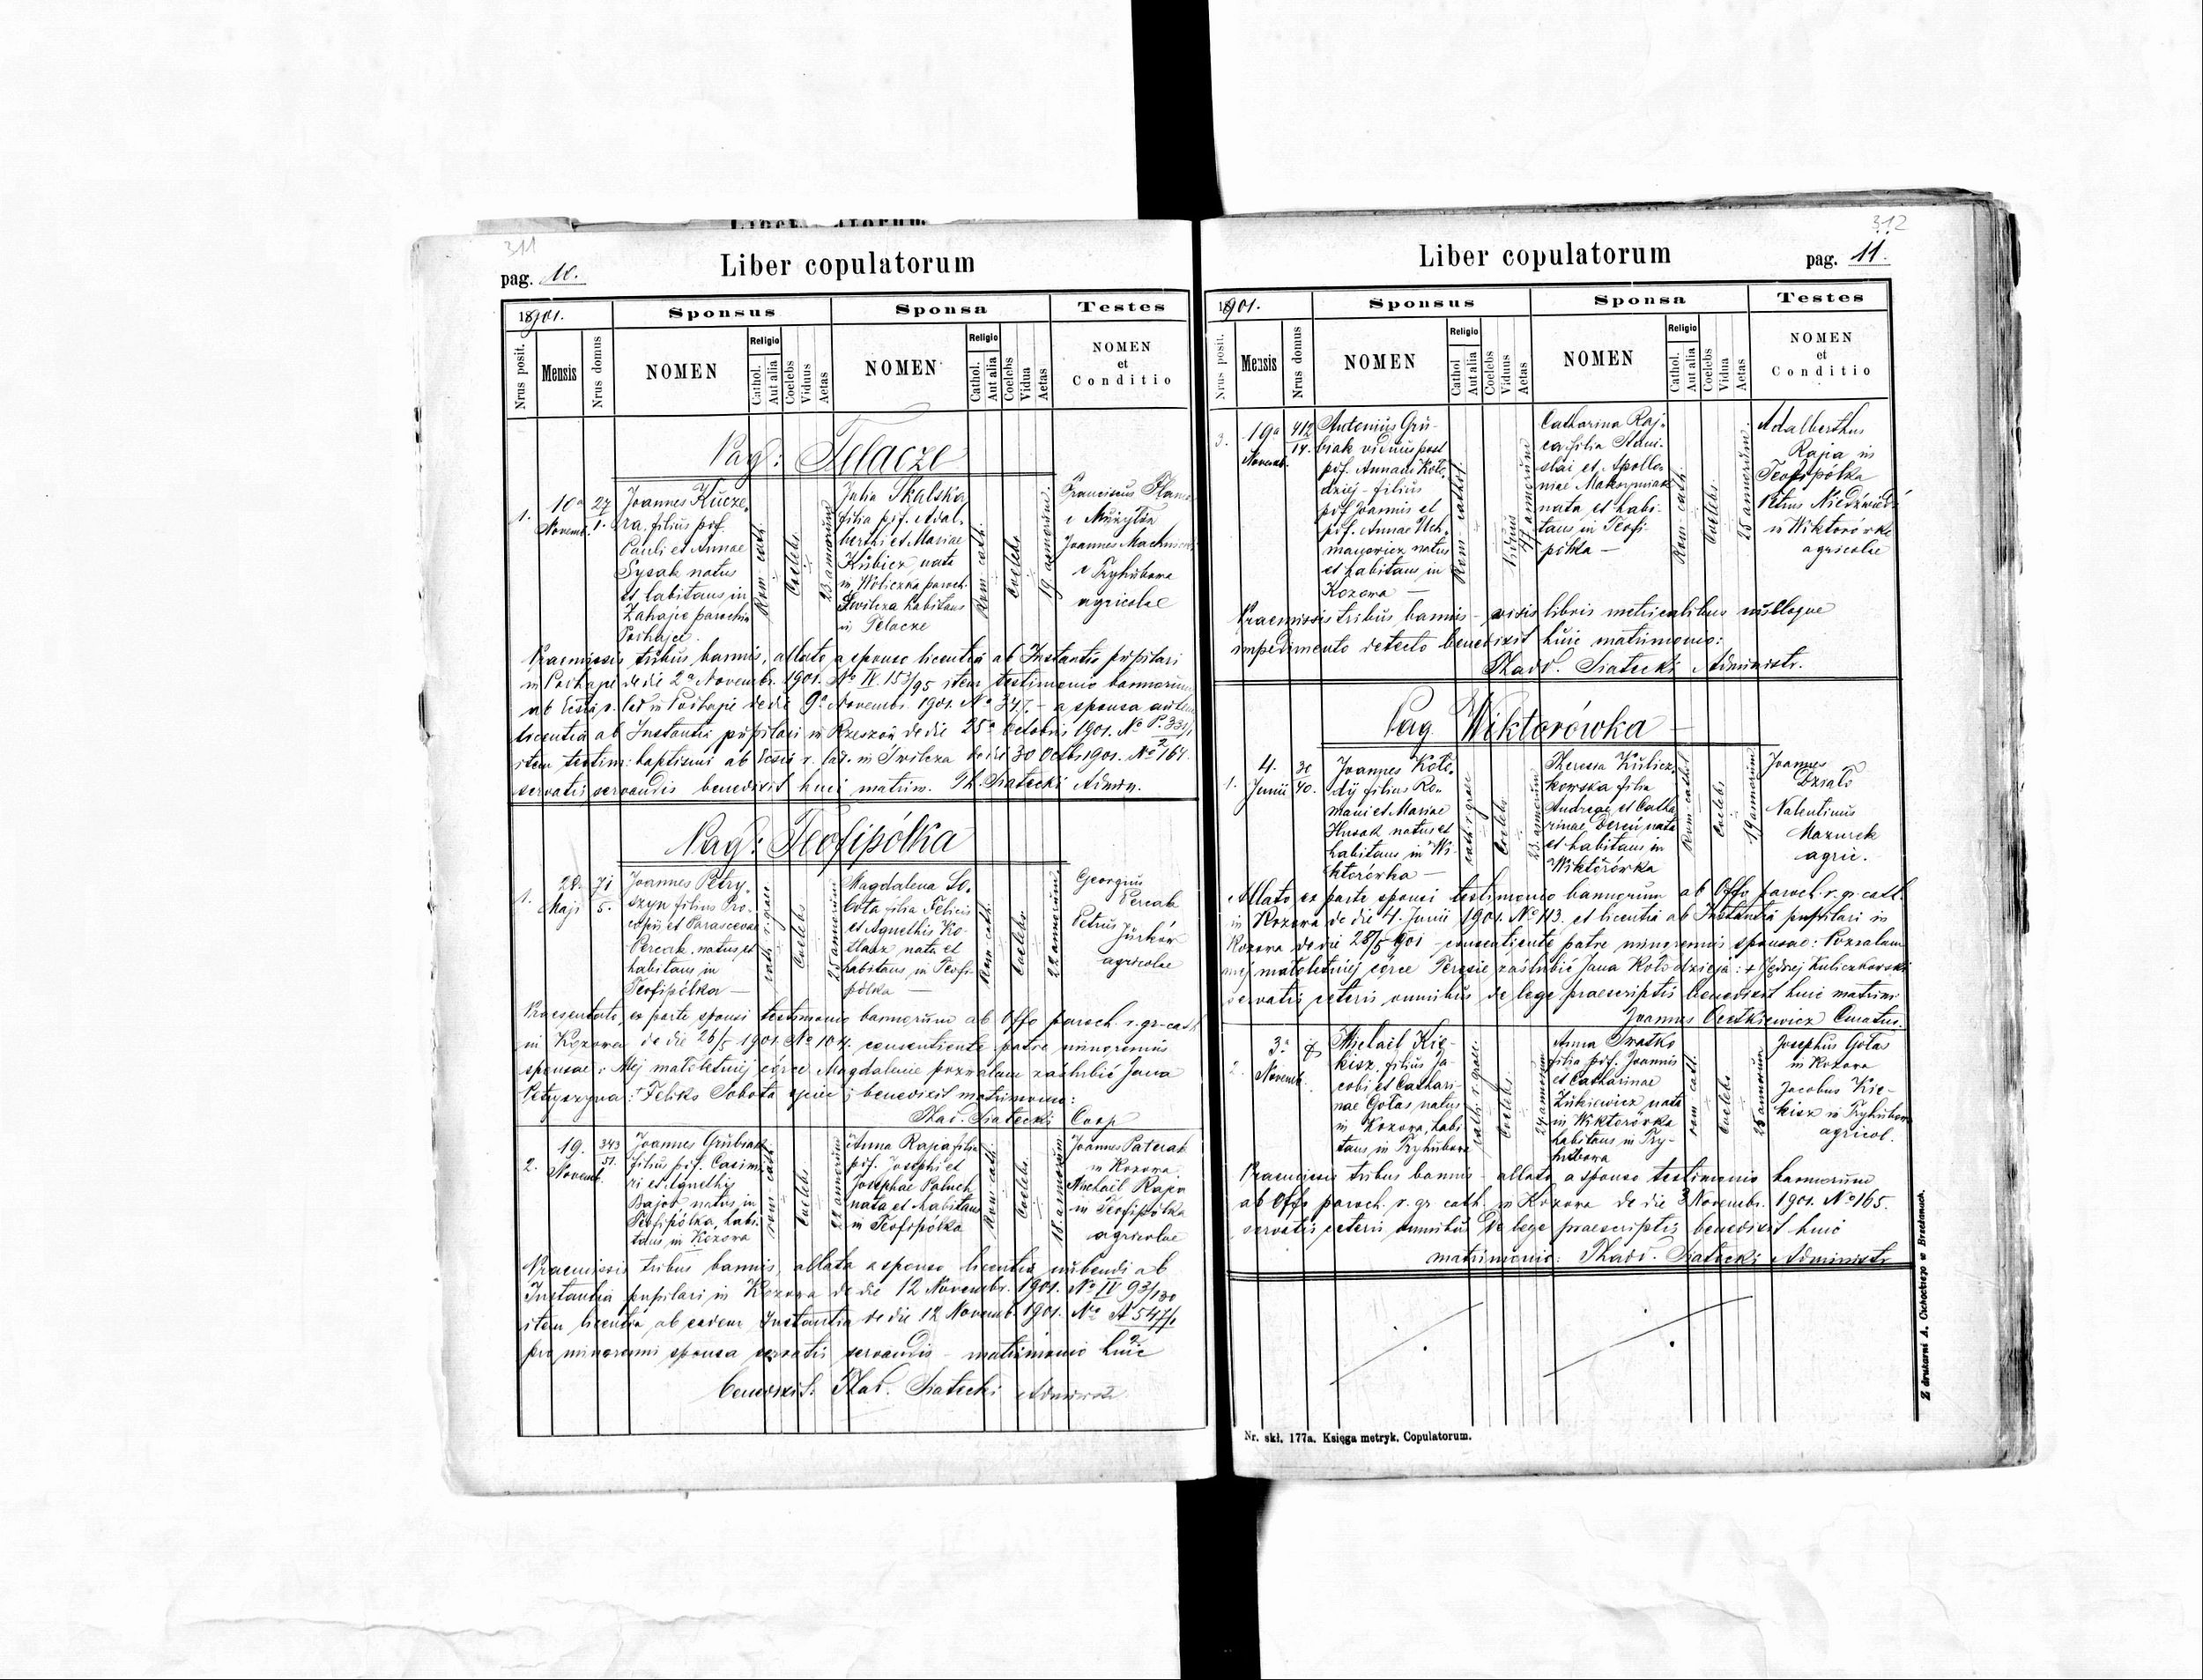 311
Liber copulatorum
pag. 10.
1901.
Sponsus
Sponsa
Testes
Nrus posit.
Mensis
Nrus domus
NOMEN
Religio
Cathol.
Aut alia
Coelebs
Viduus
Aetas
NOMEN
Religio
Cathol.
Aut alia
Coelebs
Vidua
Aetas
NOMEN
et
Conditio
Pag: Telacze
1.
10a
Novemb.
27
1.
Joannes Kucze-
ra, filius pdf.
Pauli et Annae
Sysak natus
et habitans in
Zahajce parochia
Podhajce.
Rom. cath.
Coelebs
23 annorum
Julia Skalska
filia pdf. Adal-
berthi et Mariae
Kubicz nata
in Woliczka paroch.
Swilcza habitans
in Telacze
Rom. cath.
Coelebs
19 annorum.
Franciscus
Joannes
agricolae
Praemissis tribus bannis, allato a sponso licentia ab Instantia pupilari
in Podhajce de die 2a Novembr. 1901. No IV. 153/95 item testimonio bannorum
ab r. lat in Podhajce de die 9a Novembr. 1901. No 347. - a sponsa autem
licentia ab Instantia pupilari in Rzeszow de die 25a Octobris 1901. No P. 331/1
2
item testim: baptismi ab r. lat. in Swilcza de die 30 Octb. 1901. No 164.
servatis servandis benedixit huic matrim. Th. Siatecki Admn.
Pag: Teofipólka
1.
28.
Maji
71
5.
Joannes Petry-
szyn filius Pro-
copii et Parascevae
Percak natus et
habitans in
Teofipólka —
cath. r. graec.
Coelebs
25 annorum
Magdalena So-
bota filia Felicis
et Agnethis Ko-
tlarz nata et
habitans in Teofi-
pólka —
Rom. cath.
Coelebs
22 annorum
Georgius
Percak
Petrus
Jurków
agricolae
Praesentato, ex parte sponsi testimonio bannorum ab Offo paroch. r. gr. cath
in Kozowa de die 26/5 1901. No 104. consentiente patre minorennis
sponsae: Mej małoletniej córce Magdalenie pozwalam zaślubić Jana
Petryszyna: + Feliks Sobota ojciec; benedixit matrimonio:
Thad. Siatecki Coop
2.
19.
Novemb.
343
51.
Joannes Grubiak
filius pdf. Casimi-
ri et Agnethis
Bajor, natus in
Teofipólka, habi-
tans in Kozowa
rom. cath.
Coelebs
22 annorum
Anna Rajca filia
pdf. Josephi et
Josephae Paluch
nata et habitans
in Teofipólka
Rom. cath.
Coelebs.
18 annorum
Joannes Paterak
in Kozowa
Michaël Rajca
in Teofipólka
agricolae
Praemissis tribus bannis, allata a sponso licentia nubendi ab
Instantia pupilari in Kozowa de die 12 Novembr. 1901. No IV 93/130
item licentia ab eadem Instantia de die 12 Novemb. 1901. No A 547/1
2
pro minorenni sponsa servatis servandis - matrimonio huic
benedixit. Thad. Siatecki Administr.
312
Liber copulatorum
pag. 11.
1901.
Sponsus
Sponsa
Testes
Nrus posit.
Mensis
Nrus domus
NOMEN
Religio
Cathol
Aut alia
Coelebs
Viduus
Aetas
NOMEN
Religio
Cathol.
Aut alia
Coelebs
Vidua
Aetas
NOMEN
et
Conditio
3.
19a
Novemb.
412
14.
Antonius Gru-
biak viduus post
pdf. Annam Koło-
dziej - filius
pdf Joannis et
pdf. Annae Uch-
manowicz natus
et habitans in
Kozowa —
Rom. cathol.
Viduus
annorum
Catharina Raj-
ca filia Stani-
slai et Apollo-
niae Makszymiak
nata et habi-
tans in Teofi-
pólka —
Rom. cath.
Coelebs.
25 annorum.
Adalberthus
Rajca in
Teofipólka
Petrus Niedźwiedź
in Wiktorówka
agricolae
Praemissis tribus bannis - visis libris metricalibus nulloque
impedimento detecto benedixit huic matrimonio:
Thadd. Siatecki Administr.
Pag. Wiktorówka —
1.
4.
Junii
30
40.
Joannes Koło-
dij filius Ro-
mani et Mariae
Husak natus et
habitans in Wi-
ktorówka —
cath r. graec
Coelebs
23. annorum
Theresa Kulicz-
kowska filia
Andreae et Catha-
rinae Dereń nata
et habitans in
Wiktorówka
Rom. cathol
Coelebs
19 annorum
Joannes
Działo
Valentinus
Mazurek
agric.
Allato ex parte sponsi testimonio bannorum ab Offo paroch. r. gr. cath
in Kozowa de die 4. Junii 1901. No 113. et licentia ab Instantia pupilari in
Kozowa de die 28/5 901 - consentiente patre minorennis sponsae: Pozwalam
mej małoletniej córce Teresie zaślubić Jana Kołodzieja: + Jędrzej Kuliczkowski
servatis ceteris omnibus de lege praescriptis benedixit huic matrim.
Joannes Curatus.
2.
3.
Novemb.
Michaël Kie-
kisz, filius Ja-
cobi et Cathari-
nae Gołas natus
in Kozowa, habi-
tans in Tryhubowa
cath. r. graec.
Coelebs.
24 annorum
Anna Swatko
filia pdf. Joannis
et Catharinae
Żukiewicz nata
in Wiktorówka
habitans in Try-
hubowa
rom cath.
Coelebs
25 annorum
Josephus Gołas
in Kozowa
Jacobus Kie-
kisz in Tryhubowa
agricol.
Praemissis tribus bannis - allato a sponso testimonio bannorum
ab Offo paroch. r. gr cath in Kozowa de die 3 Novembr. 1901. No 165.
servatis ceteris omnibus de lege praescriptis benedixit huic
matrimonio: Thadd. Siatecki Administr
Nr. skł. 177a. Księga metryk. Copulatorum.
Z drukarni A. Cichockiego w Brzeżanach.